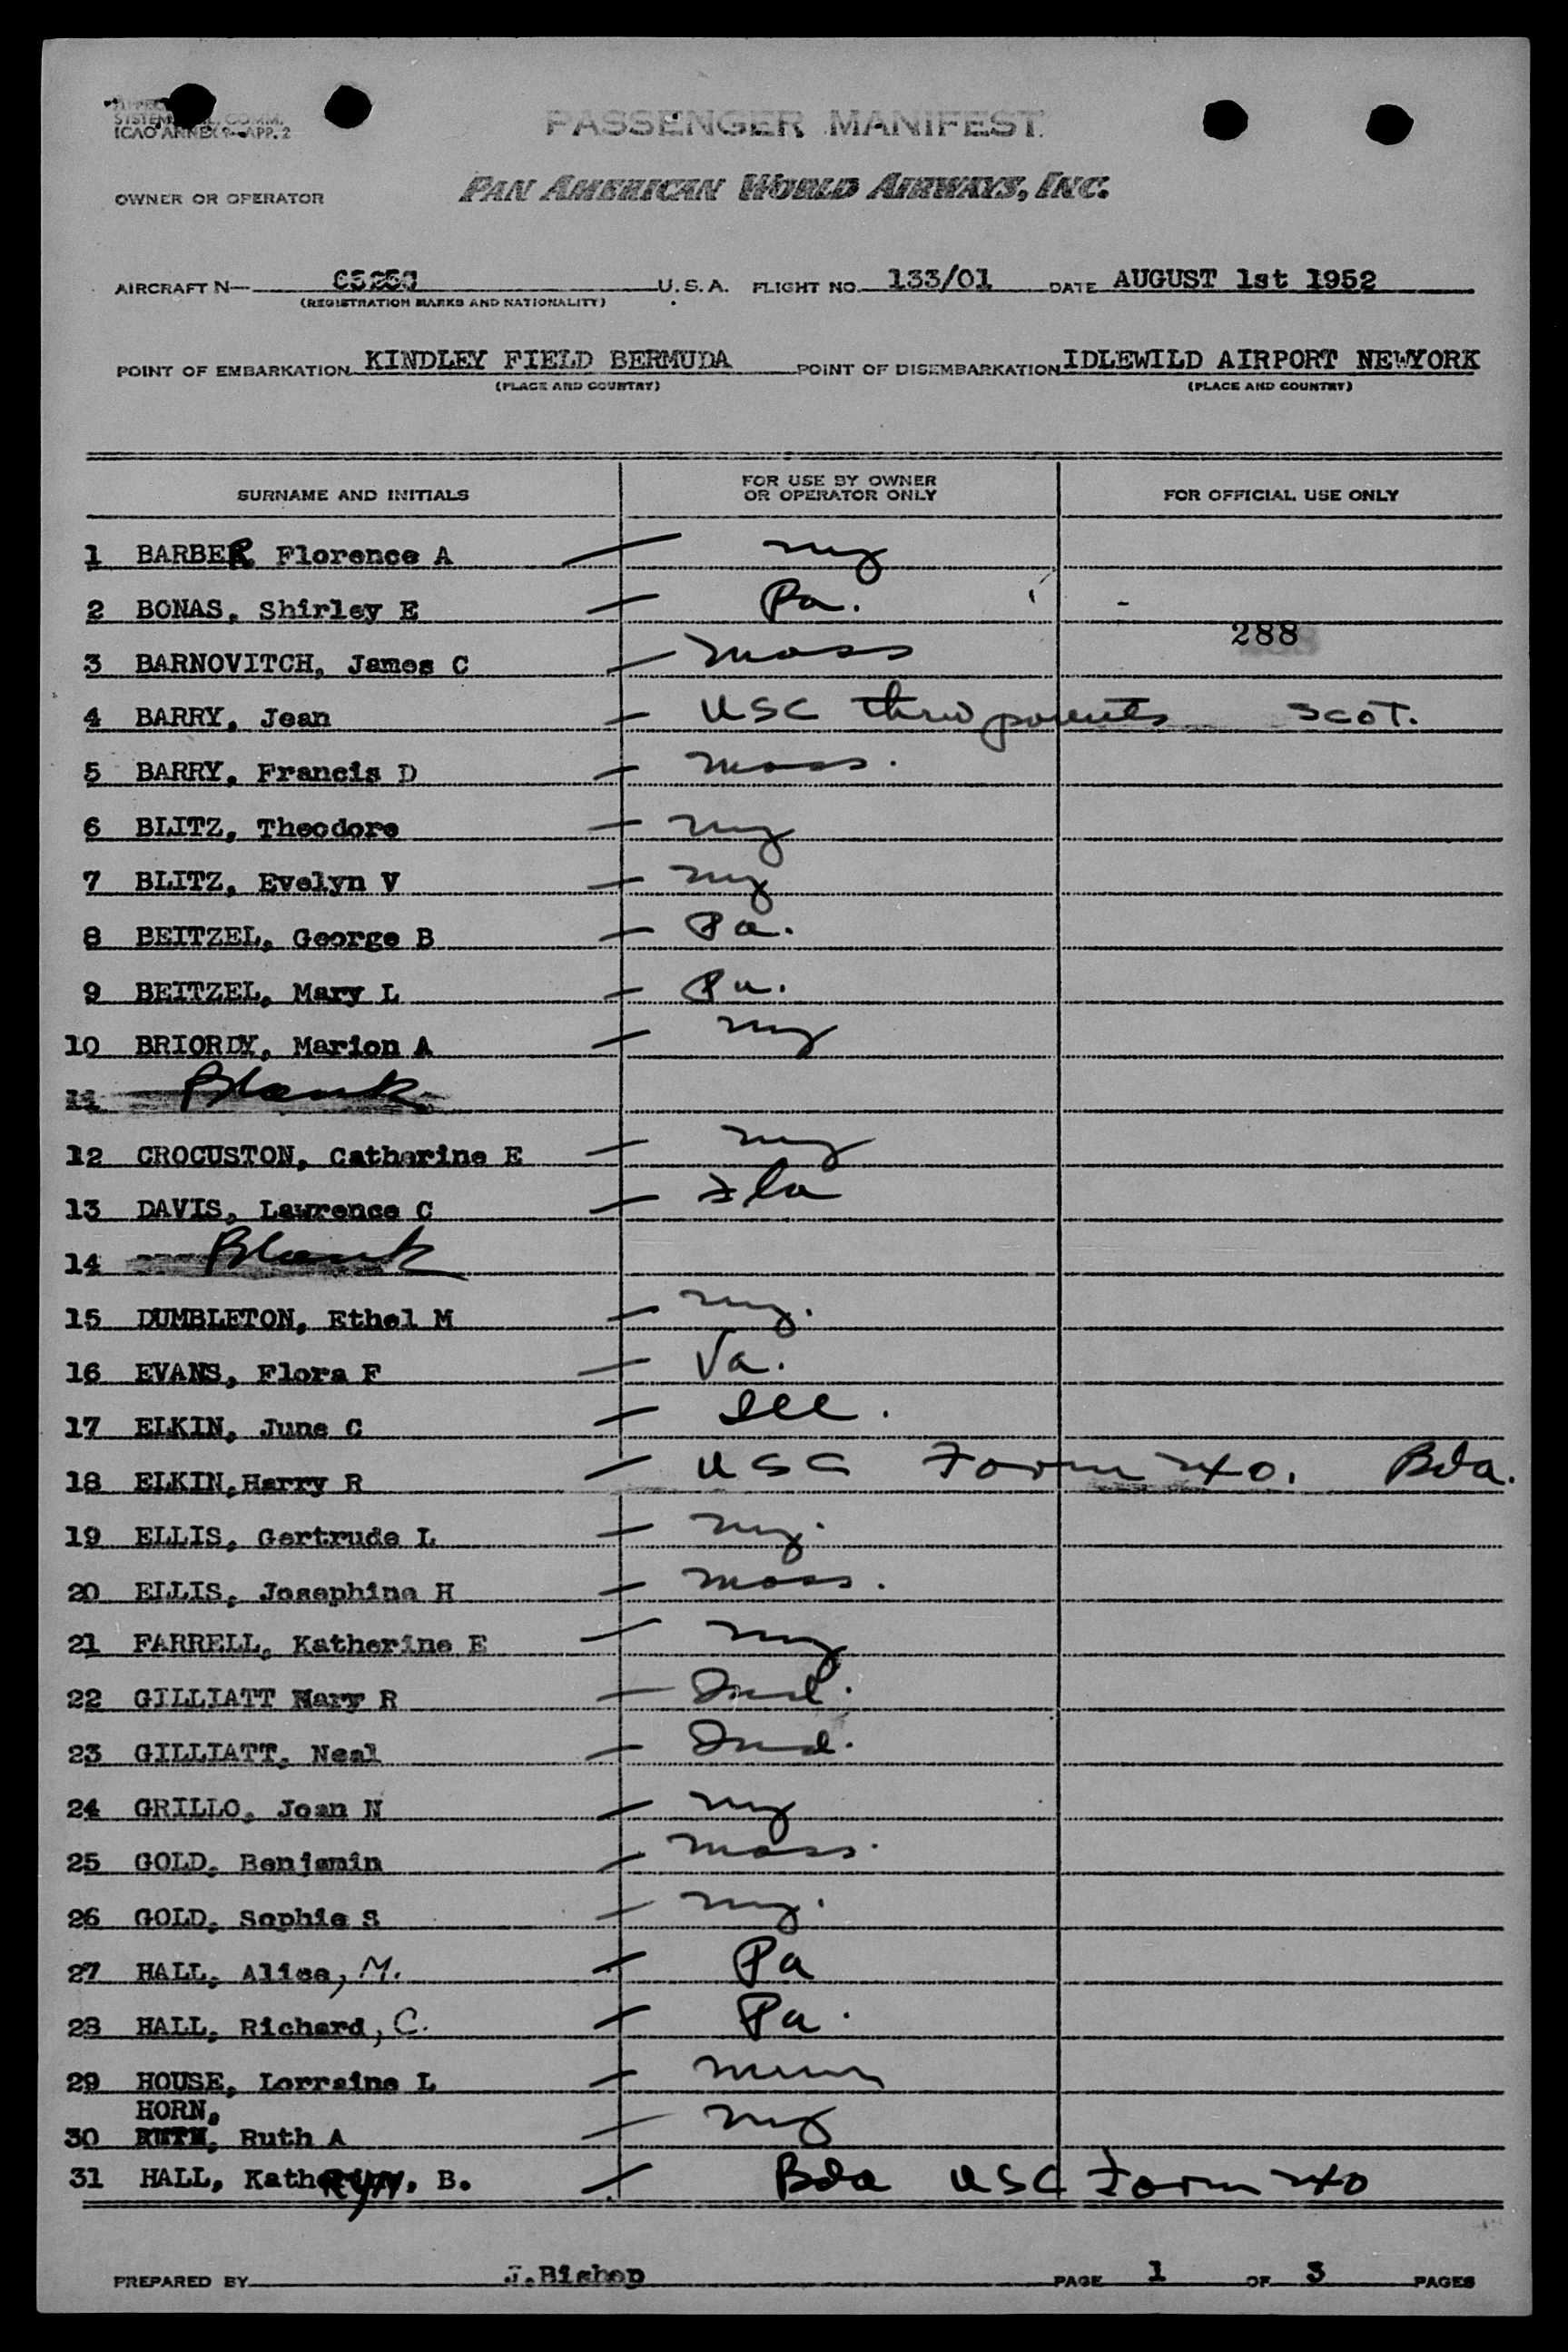 SYSTEM COMM.
ICAO ANNEX 9 APP. 2
PASSENGER MANIFEST
OWNER OR OPERATOR PAN AMERICAN WORLD AIRWAYS, INC.
AIRCRAFT N— U.S.A. FLIGHT NO. 133/01 DATE AUGUST 1st 1952
(REGISTRATION MARKS AND NATIONALITY)
POINT OF EMBARKATION KINDLEY FIELD BERMUDA POINT OF DISEMBARKATION IDLEWILD AIRPORT NEWYORK
(PLACE AND COUNTRY) (PLACE AND COUNTRY)
SURNAME AND INITIALS FOR USE BY OWNER OR OPERATOR ONLY FOR OFFICIAL USE ONLY
1 BARBER Florence A — ny
2 BONAS, Shirley E — Pa.
288
3 BARNOVITCH, James C — Mass
4 BARRY, Jean — USC thru parents Scot.
5 BARRY, Francis D — Mass.
6 BLITZ, Theodore — ny
7 BLITZ, Evelyn V — ny
8 BEITZEL, George B — Pa.
9 BEITZEL, Mary L — Pa.
10 BRIORDY, Marion A — ny
11 Blank
12 CROCUSTON, Catherine E — ny
13 DAVIS, Lawrence C — Fla
14 Blank
15 DUMBLETON, Ethel M — ny.
16 EVANS, Flora F — Va.
17 ELKIN, June C — Ill.
18 ELKIN, Harry R — USC Form 240. Bda.
19 ELLIS, Gertrude L — ny.
20 ELLIS, Josephine H — Mass.
21 FARRELL, Katherine E — ny
22 GILLIATT Mary R — Ind.
23 GILLIATT, Neal — Ind.
24 GRILLO, Joan N — ny
25 GOLD, Benjamin — Mass.
26 GOLD, Sophie S — ny.
27 HALL, Alice, M. — Pa
28 HALL, Richard, C. — Pa.
29 HOUSE, Lorraine L — Minn
HORN,
30 RUTH, Ruth A — ny
31 HALL, KathERYN, B. — Bda USC Form 240
PREPARED BY J.Bishop PAGE 1 OF 3 PAGES